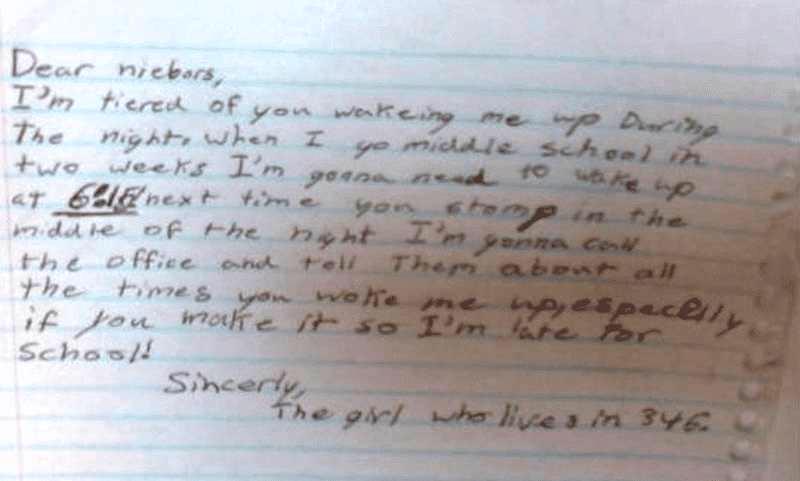 Dear niebors,
I'm tiered of you wakeing me up During
The night, when I go middle school in
two weeks I'm gonna need to wake up
at 6:15! next time you stomp in the
middle of the night I'm gonna call
the office and tell Them about all
the times you woke me up, especallly
if you make it so I'm late for
School!
Sincerly,
The girl who lives in 346.